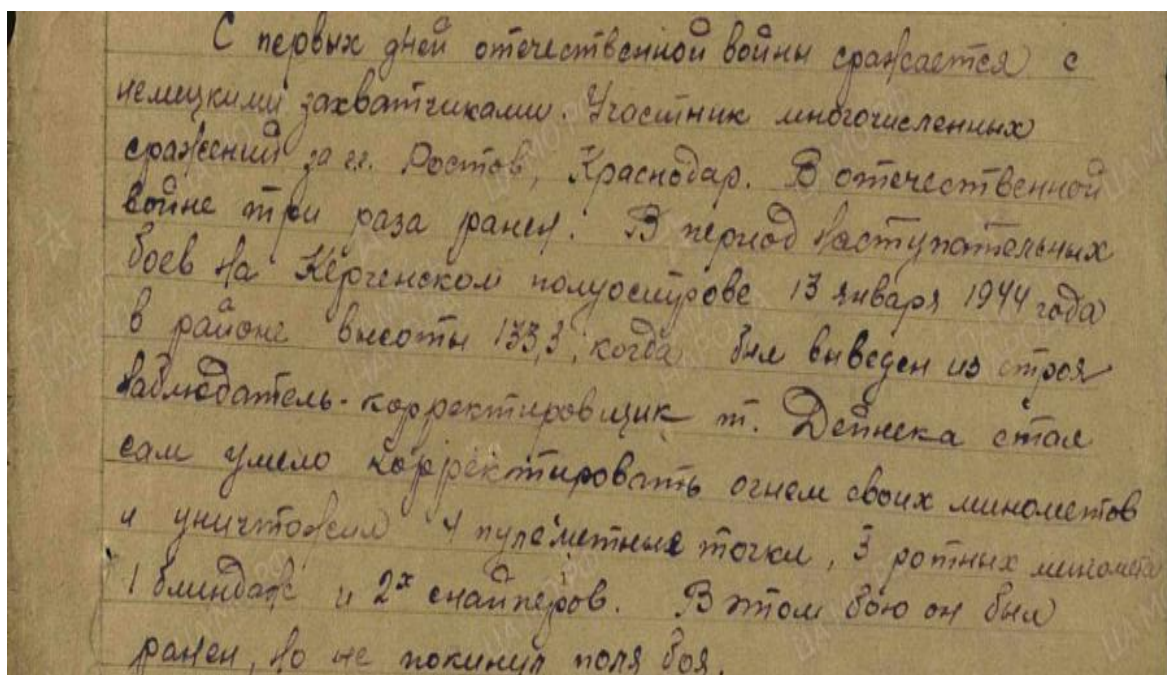 С первых дней отечественной войны сражается с
немецкими захватчиками. Участник многочисленных
сражений за гг. Ростов, Краснодар. В отечественной
войне три раза ранен. В период наступательных
боев на Керченском полуострове 13 января 1944 года
в районе высоты 133,3, когда был выведен из строя
наблюдатель-корректировщик т. Дейнека стал
сам умело корректировать огнем своих минометов
и уничтожил 4 пулеметные точки, 3 ротных миномета
1 блиндаж и 2х снайперов. В этом бою он был
ранен, но не покинул поля боя.